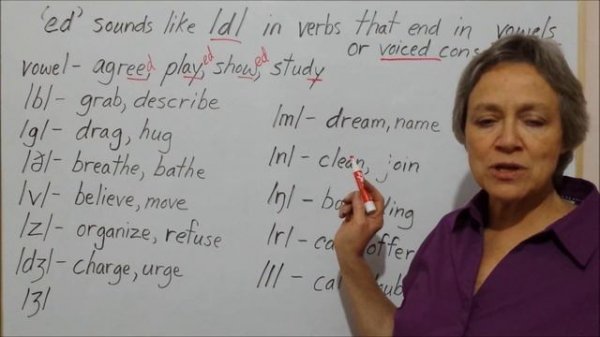 'ed' sounds like /d/ in verbs that end in vowels
or voiced
vowel - agreed, played, showed, study
/b/ - grab, describe
/g/ - drag, hug
/ð/ - breathe, bathe
/v/ - believe, move
/z/ - organize, refuse
/dʒ/ - charge, urge
/ʒ/
/m/ - dream, name
/n/ - clean, join
/ŋ/ -
/r/ - offer
/l/ -